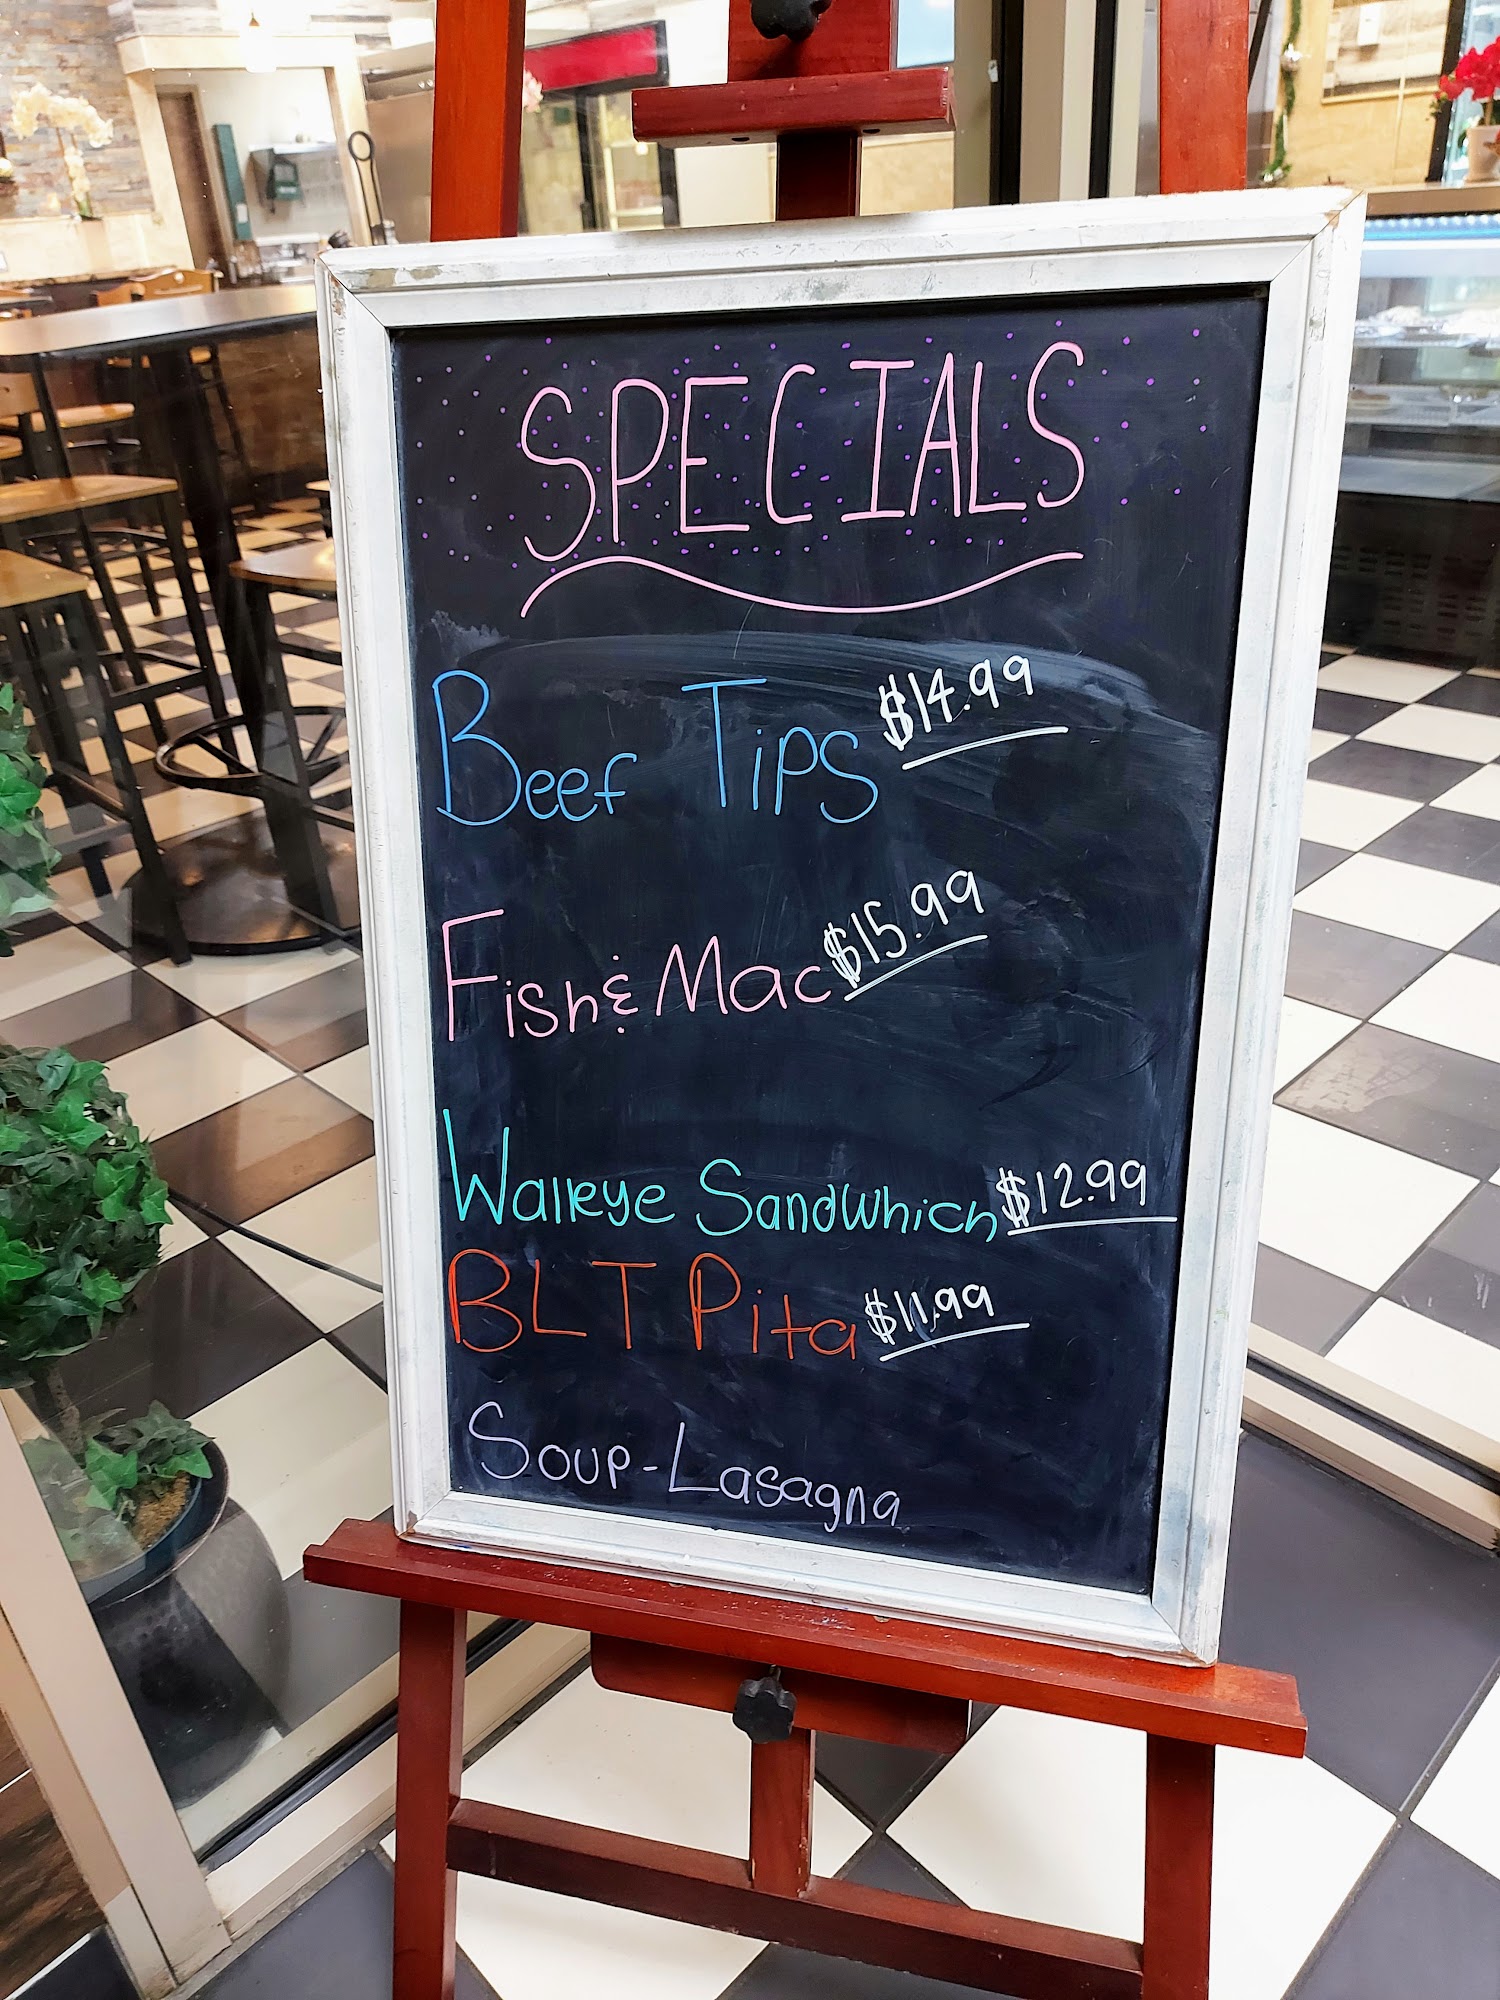 SPECIALS
Beef Tips $14.99
Fish & Mac $15.99
Walleye Sandwhich $12.99
BLT Pita $11.99
Soup - Lasagna